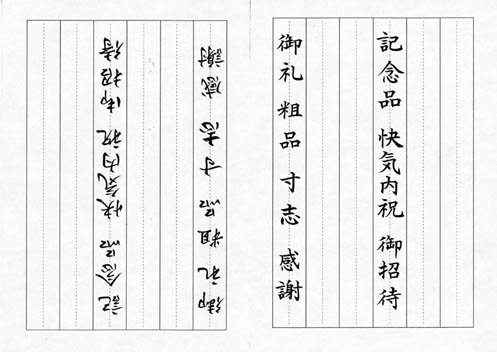 記念品 快気内祝 御招待
御礼 粗品 寸志 感謝
記念品 快気内祝 御招待
御礼 粗品 寸志 感謝